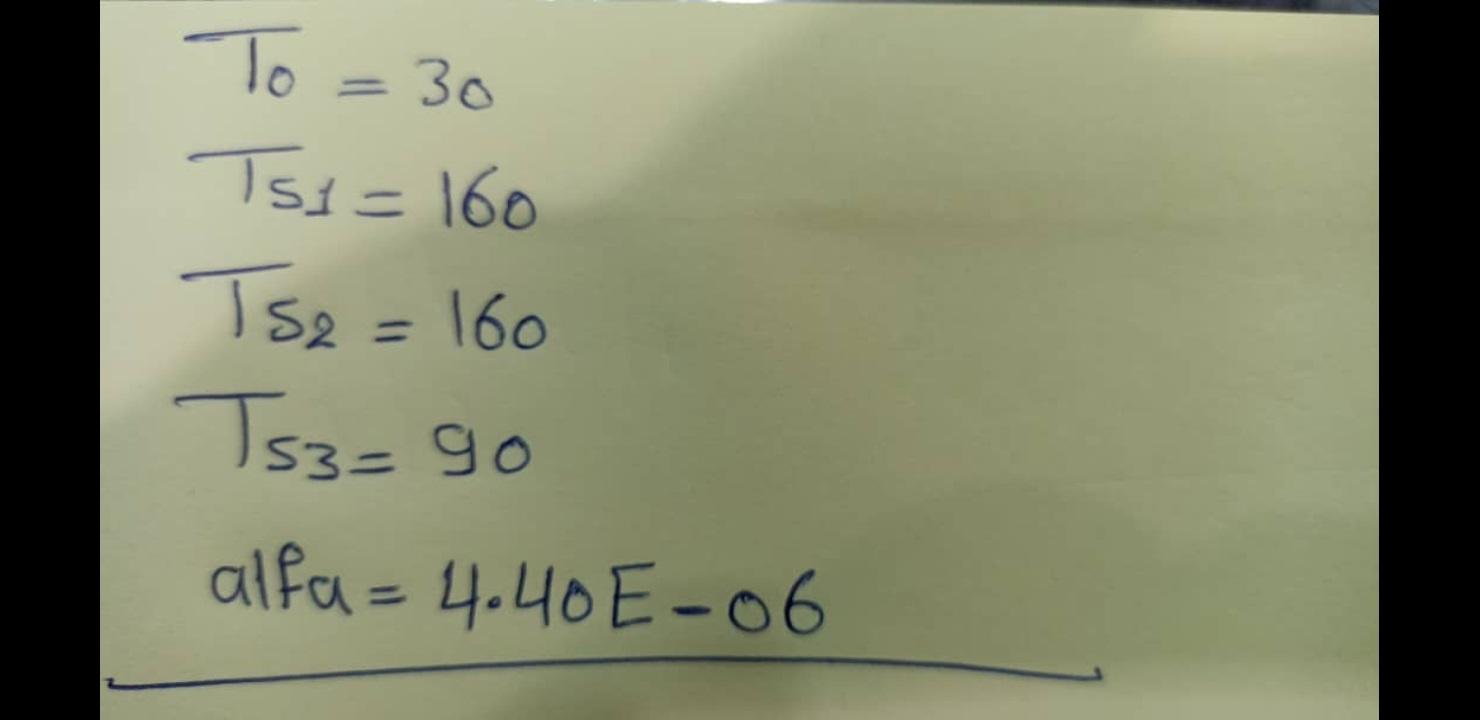 T0 = 30
Ts1 = 160
Ts2 = 160
Ts3 = 90
alfa = 4.40E-06